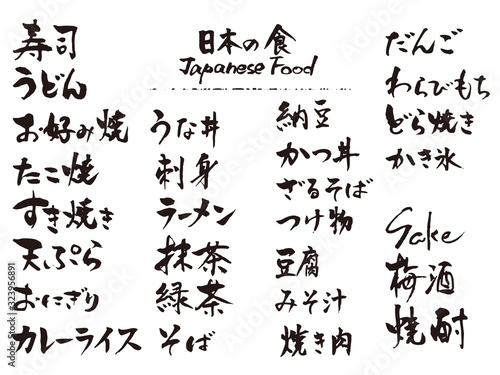 日本の食
Japanese Food
寿司
うどん
お好み焼
たこ焼
すき焼き
天ぷら
おにぎり
カレーライス
うな丼
刺身
ラーメン
抹茶
緑茶
そば
納豆
かつ丼
ざるそば
つけ物
豆腐
みそ汁
焼き肉
だんご
わらびもち
どら焼き
かき氷
Sake
梅酒
焼酎
Adobe Stock | #323956891